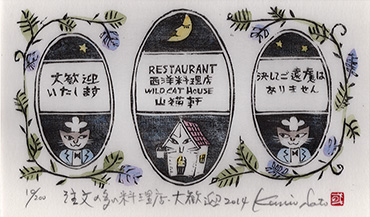 大歓迎
いたします
RESTAURANT
西洋料理店
WILD CAT HOUSE
山猫軒
決してご遠慮は
ありません
注文の多い料理店・大歓迎 2014